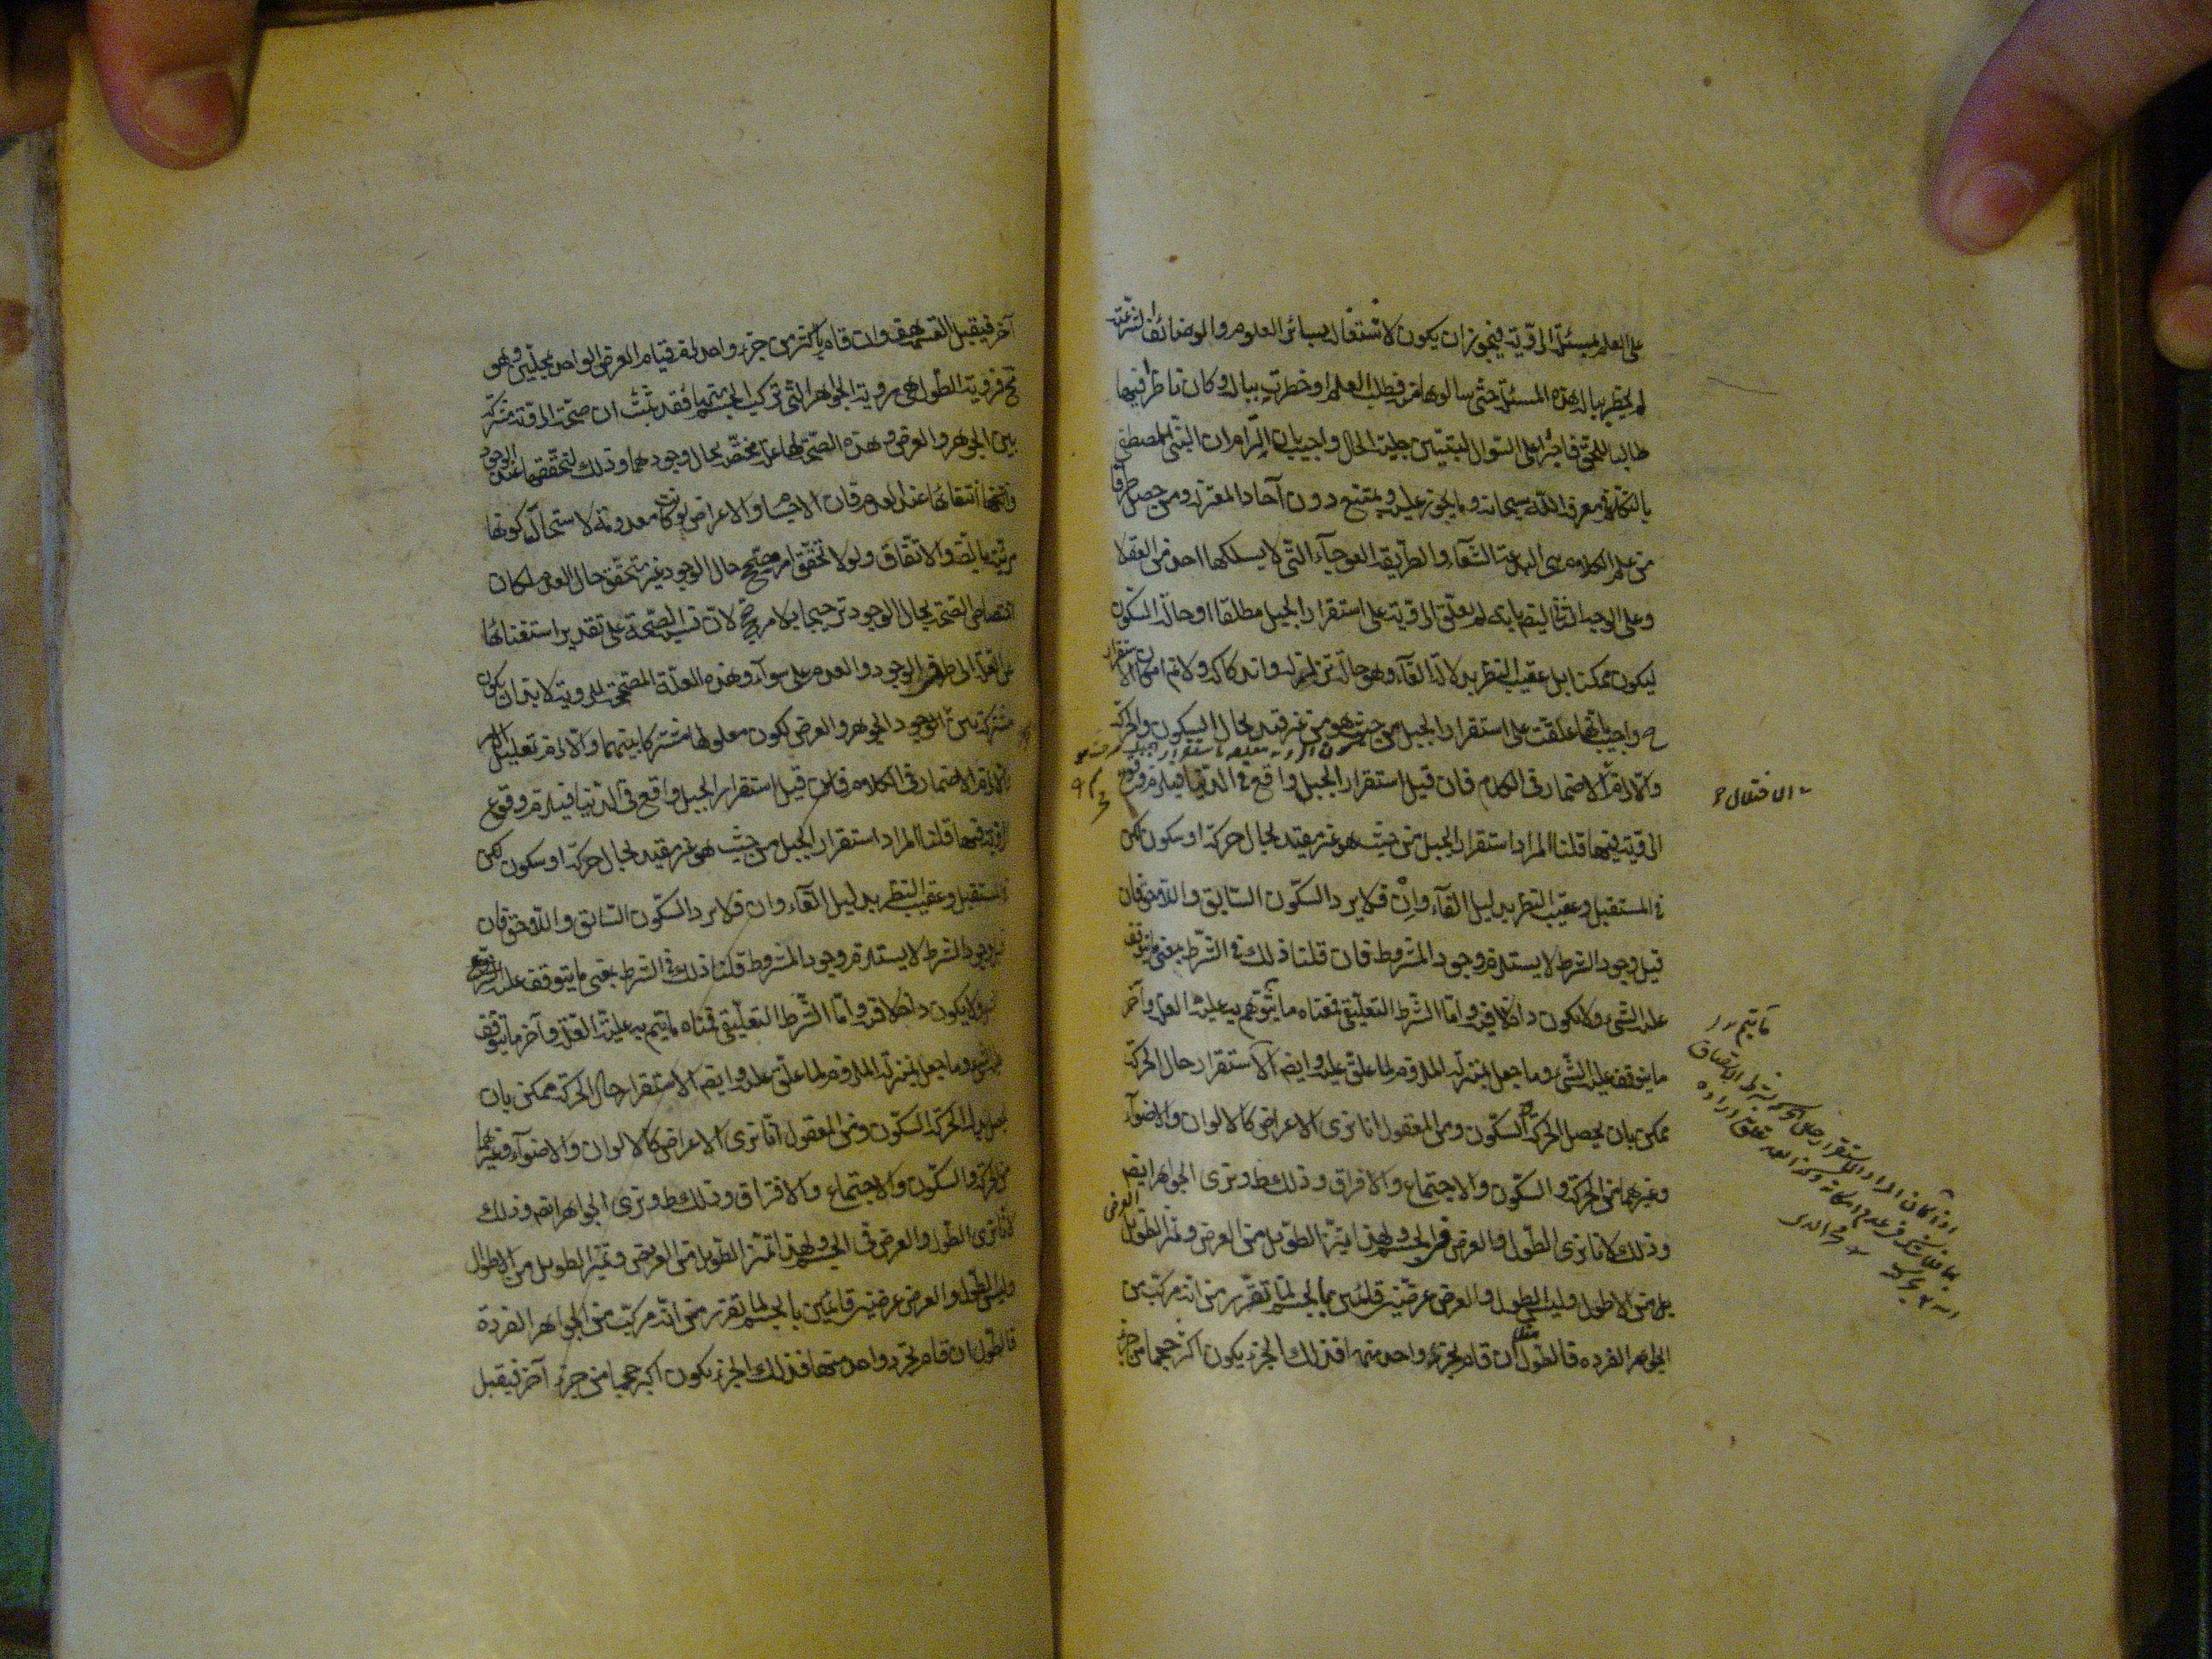 على العلم بمسئلة الرؤية فيجوز ان يكون لاشتغاله بسائر العلوم والوضائف الشرعية
لم يخطر بباله هذه المسئلة حتى سالوها منه فطلب العلم او خطرت بباله وكان ناظرا فيها
طالبا للحق فاجترأ على السؤال ليتبين جلية الحال واجيب بان التزام ان النبي المصطفى
بالتكلم في معرفة الله سبحانه وما يجوز عليه ويمتنع دون آحاد المعتزلة ومن حصل طرفا
من علم الكلام هي البدعة الشنعاء والطريقة العوجآء التي لا يسلكها احد من العقلا
وعلى الوجه الثاني بانه لم يعلق الرؤية على استقرار الجبل مطلقا او حالة السكون
ليكون ممكنا بل عقيب النظر بدلالة الفآء وهو حالة تزلزله واندكاكه ولا نم امكان الاستقرار
ح واجيب بانها علقت على استقرار الجبل من حيث هو من غير قيد بحال السكون والحركة
والا لزم الاضمار في الكلام فان قيل استقرار الجبل واقع في الدنيا فيلزم وقوع
الرؤية فيها قلنا المراد استقرار الجبل من حيث هو غير مقيد بحال حركة او سكون لكن
في المستقبل وعقيب النظر بدليل الفآء وان فلا يرد السكون السابق واللاحق فان
قيل وجود الشرط لا يستلزم وجود المشروط فان قلنا ذلك في الشرط بمعنى ما يتوقف
عليه الشيء ولا يكون داخلا فيه واما الشرط التعليقي فمعناه ما يتم به علية العلة وآخر
ما يتوقف عليه الشيء وما جعل بمنزلة الملزوم لما علق عليه وايضا الاستقرار حال الحركة
ممكن بان يحصل الحركة السكون ومن المعقول انا نرى الاعراض كالالوان والاضوآء
وغيرهما من الحركة والسكون والاجتماع والافراق وذلك ظ ونرى الجواهر ايضا
وذلك لانا نرى الطول والعرض في الجسم ولهذا نميز الطويل من العريض ونميز الطويل
بل من الاطول وليس الطول والعرض عرضين قائمين بالجسم لما تقرر من انه مركب من
الجواهر الفرده فالطول مثلا ان قام بجزء واحد منها فذلك الجزء يكون اكثر حجما من جزء
آخر فيقبل القسمة هف وان قام باكثر من جزء واحد لزم قيام العرض الواحد بمحلين وهو
مح فرؤية الطول هي رؤية الجواهر التي تركب الجسم منها فقد ثبت ان صحة الرؤية مشتركة
بين الجوهر والعرض وهذه الصحة لها علة مختصة بحال وجودهما وذلك لتحققها عند الوجود
وانتفائها عند العدم فان الاجسام والاعراض لو كانت معدومة لاستحال كونها
مرئية بالضرورة والاتفاق ولولا تحقق امر مصحح حال الوجود غير متحقق حال العدم لكان
اختصاص الصحة بحال الوجود ترجيحا بلا مرجح لان نسبة الصحة على تقدير استغنائها
عن العلة الى طرفي الوجود والعدم على سوآء وهذه العلة المصححة للرؤية لا بد ان يكون
مشتركة بين الجوهر والعرض لكون معلولها مشتركا بينهما والا لزم تعليل الامر
والا لزم الاضمار في الكلام فان قيل استقرار الجبل واقع في الدنيا فيلزم وقوع
الرؤية فيها قلنا المراد استقرار الجبل من حيث هو غير مقيد بحال حركة او سكون لكن
في المستقبل وعقيب النظر بدليل الفآء وان فلا يرد السكون السابق واللاحق فان
قيل وجود الشرط لا يستلزم وجود المشروط قلنا ذلك في الشرط بمعنى ما يتوقف عليه الشيء
ولا يكون داخلا فيه واما الشرط التعليقي فمعناه ما يتم به علية العلة وآخر ما يتوقف
عليه الشيء وما جعل بمنزلة الملزوم لما علق عليه وايضا الاستقرار حال الحركة ممكن بان
يحصل بدل الحركة السكون ومن المعقول انا نرى الاعراض كالالوان والاضوآء وغيرهما
من الحركة والسكون والاجتماع والافتراق وذلك ظ ونرى الجواهر ايضا وذلك
لانا نرى الطول والعرض في الجسم ولهذا نميز الطويل من العريض ونميز الطويل من الاطول
وليس الطول والعرض عرضين قائمين بالجسم لما تقرر من انه مركب من الجواهر الفردة
فالطول ان قام بجزء واحد منها فذلك الجزء يكون اكبر حجما من جزء آخر فيقبل